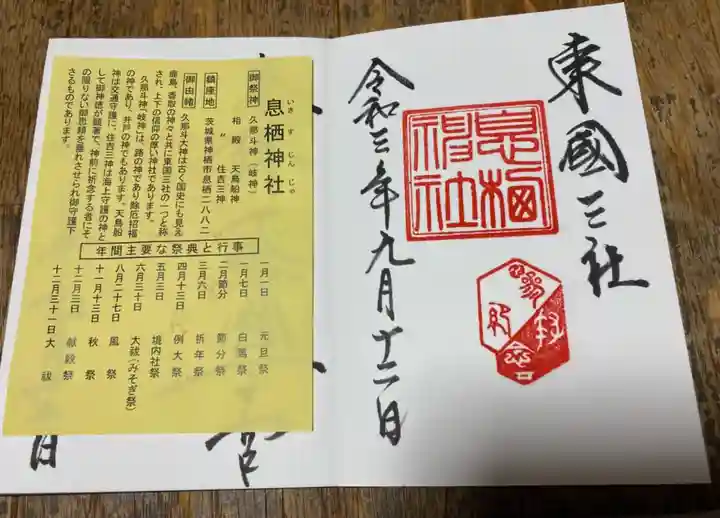 東國三社
息栖
神社
参拝
記念
令和三年九月十二日
いきすじんじゃ
息栖神社
御祭神 久那斗神(岐神)
相殿 天鳥船神
〃 住吉三神
鎮座地 茨城県神栖市息栖二八八二
御由緒 久那斗大神は古く国史にも見え
鹿島、香取の神々と共に東国三社の一つと称
され、上下の信仰の厚い神社であります。
久那斗神(岐神)は、路の神であり除厄招福
の神であり、井戸の神でもあります。天鳥船
神は交通守護に、住吉三神は海上守護の神と
して御神徳が顕著で、神前に祈念する者にそ
の限りない御恩頼を垂れさせられ御守護下
さるものであります。
年間主要な祭典と行事
一月一日 元旦祭
一月七日 白馬祭
二月節分 節分祭
三月六日 祈年祭
四月十三日 例大祭
五月三日 境内社祭
六月三十日 大祓(みそぎ祭)
八月二十七日 風祭
十一月十三日 秋祭
十二月三日 献穀祭
十二月三十一日 大祓
日